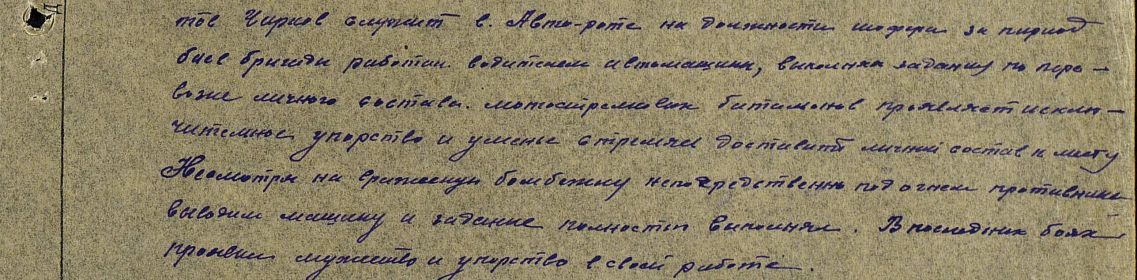 тов Чирков служит в. Авто-роте на должности шофера за период
боев бригады работал водителем автомашины, выполнял задания по пере-
возке личного состава. мотострелковых батальонов проявляет исклю-
чительное упорство и уменье стремясь доставить личный состав к месту
Несмотря на вражескую бомбежку непосредственно под огнем противника
выводил машину и задание полностью выполнял. В последних боях
проявил мужество и упорство в своей работе.